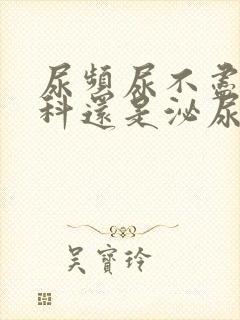 尿頻尿不盡
科還是泌尿
吳寶玲